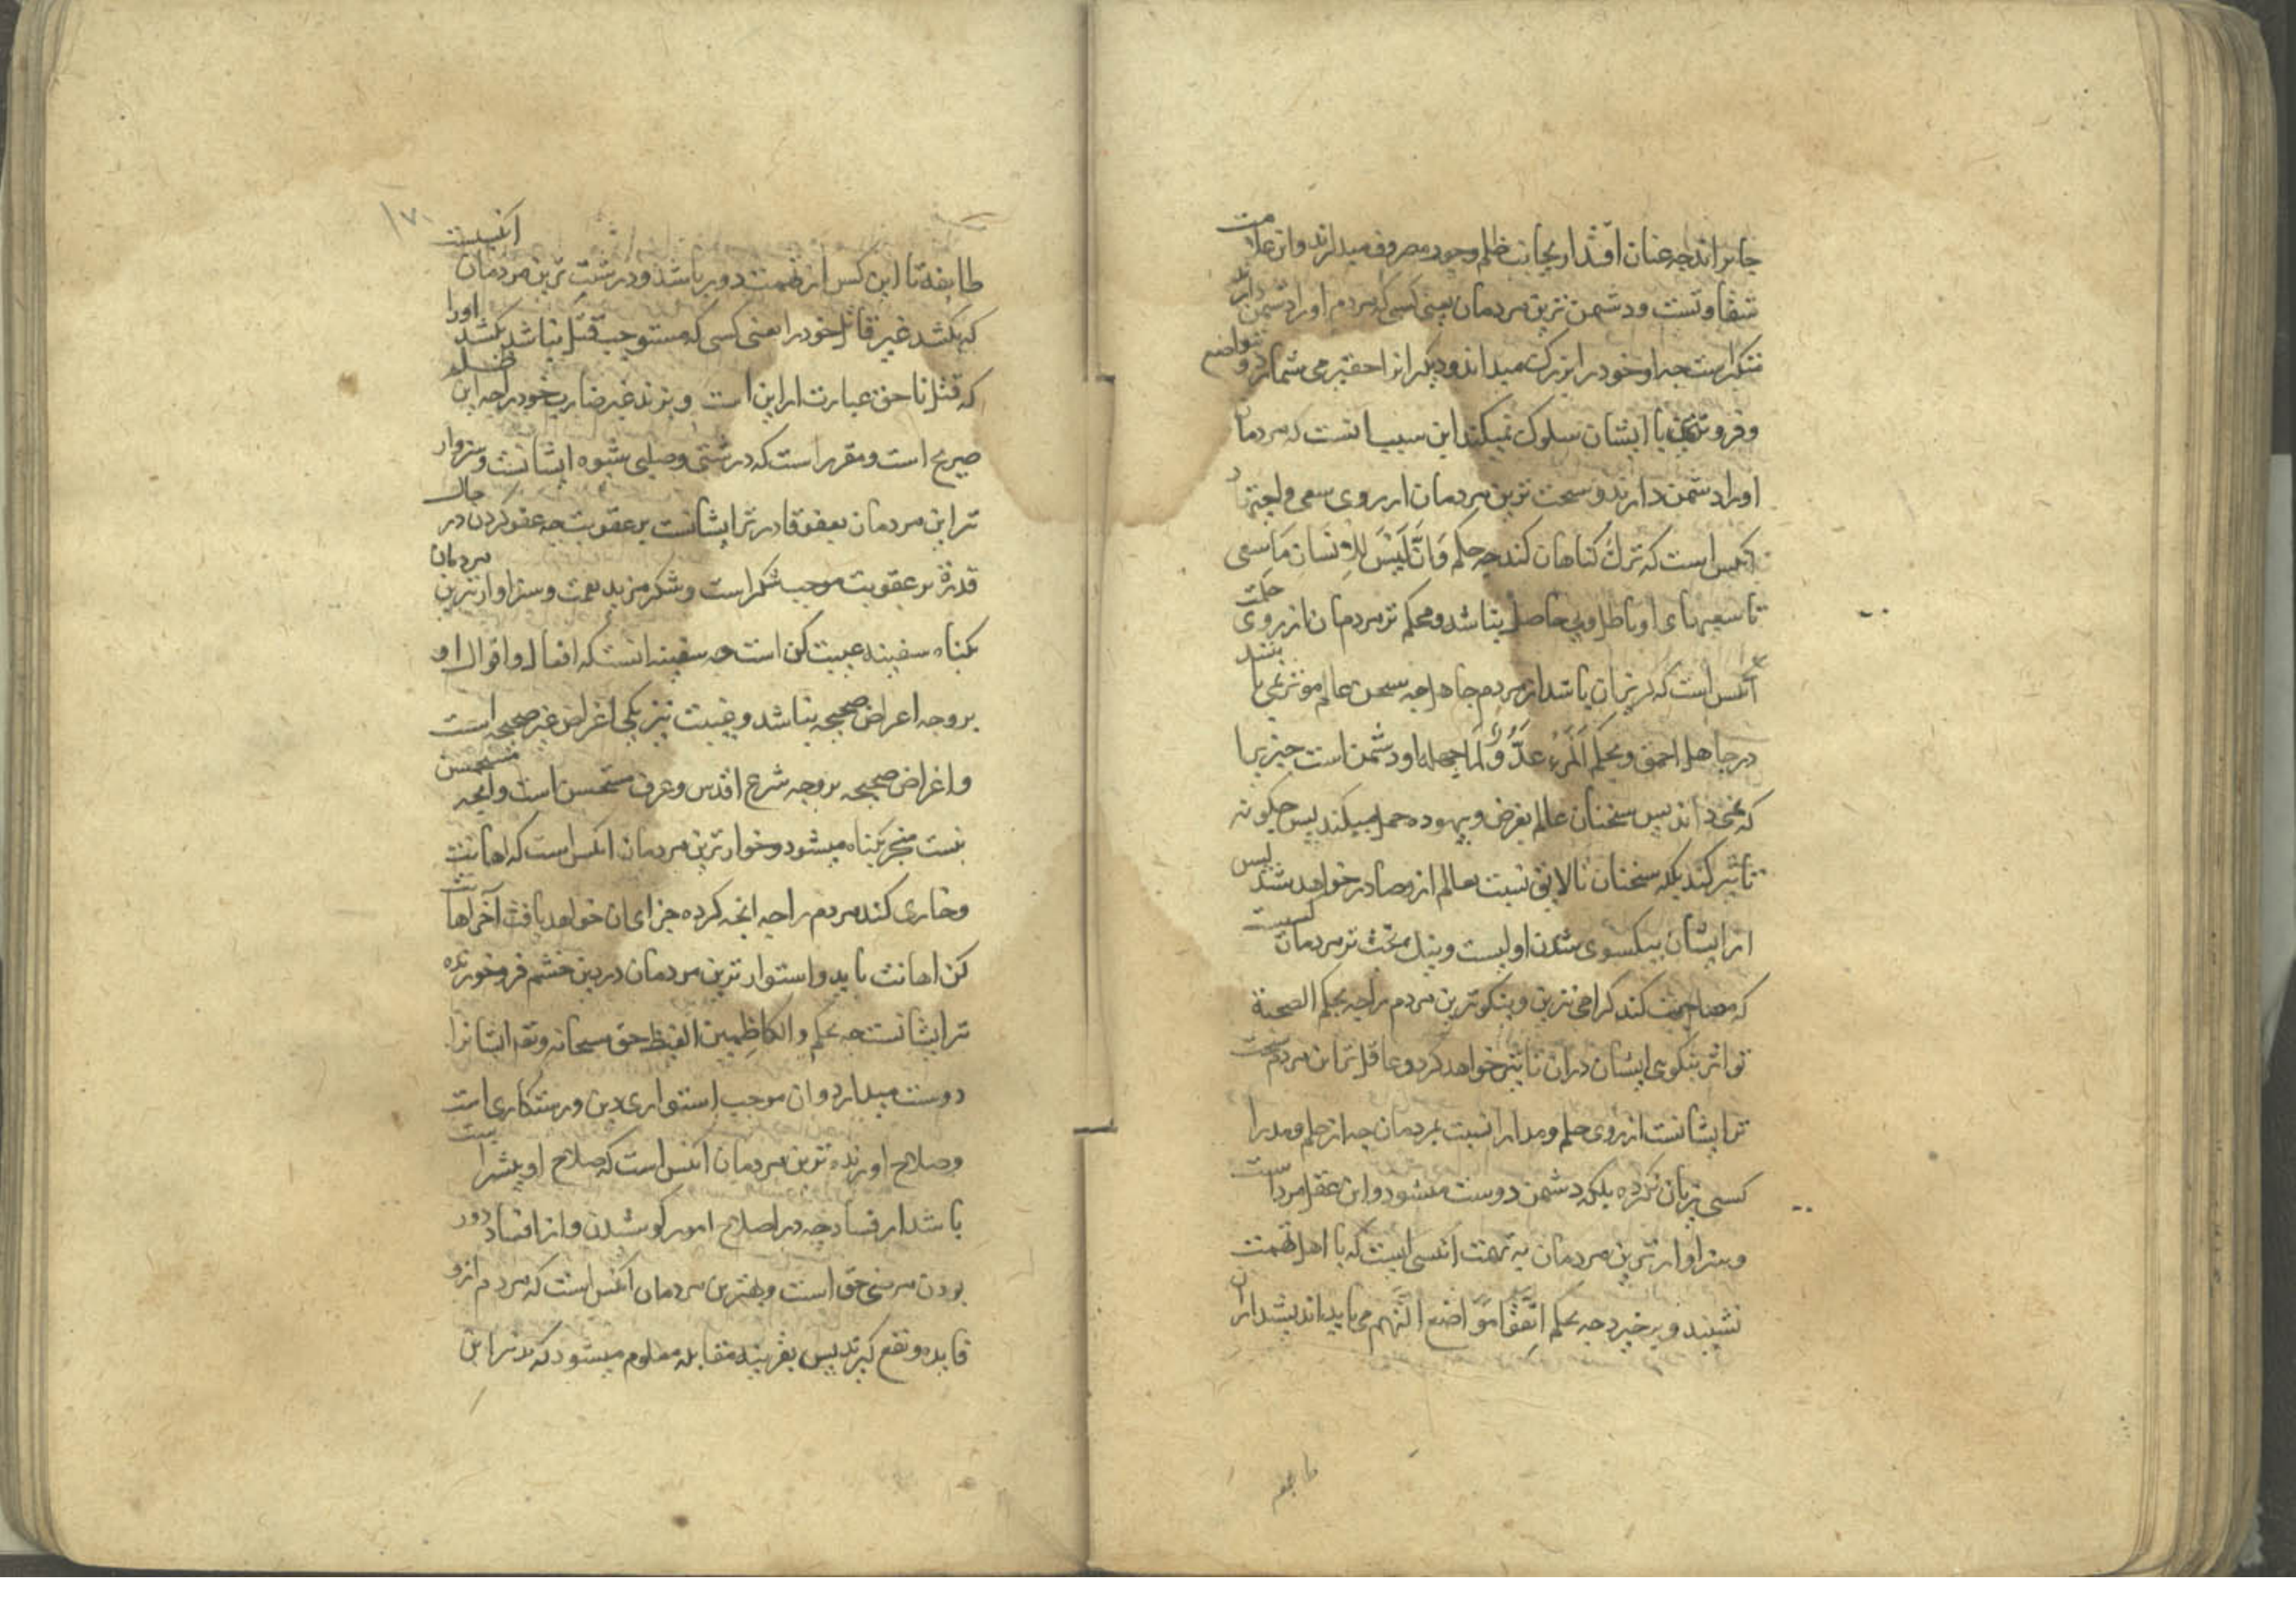 جابراند چه عنان اقتدار بجانب ظلم وجود مصروف میدارند و این علامت
شقاوتست و دشمن ترین مردمان یعنی کسی که مردم او را دشمن دارند
متکبرانست چه او خود را بزرک میداند و دیکرانرا حقیر می شمارد و تواضع
و فروتنی با ایشان سلوک نمیکند این سبب انست که مردمان
او را دشمن دارند و سخت ترین مردمان از روی سعی و اجتهاد
انکس است که ترک کناهان کند چه حکم وَاَنْ لَیْسَ لِلْاِنْسَانِ مَا سعی
تا سعیهای او باطل و بی حاصل نباشد و محکم تر مردمان از روی حکمت
انکس است که کریزان باشد از مردم جاهل چه سخن عالم موثر نمی باشد
در جاهل احمق و بحکم اَلْمَرْءُ عَدُوٌّ لِمَا جهله او دشمن است چیزیرا
که نمی داند پس سخنان عالم بغرض و بیهوده حمل میکند پس چکونه
تاثیر کند بلکه سخنان نالایق نسبت بعالم ازو صادر خواهد شد پس
از ایشان بیکسوی شدن اولیست و نیک بخت تر مردمان کسیست
که مصاحبت کند کرامی ترین و نیکوترین مردم را چه بحکم الصحبة
تواثر نیکوی ایشان در ان تاثیر خواهد کرد و عاقل ترین مردم سخت
تر ایشانست از روی حلم و مدارا نسبت بمردمان چه از حلم و مدارا
کسی زیان نکرده بلکه دشمن دوست میشود و این عقل مرد است
و سزاوار ترین مردمان به تهمت انکسی است که با اهل تهمت
نشیند و برخیزد چه بحکم اتّقوا مَوَاضع التُّهم می باید اندیشد از ان
طایفه
۱۷۰
طایفه تا این کس از تهمت دور باشد و درشت ترین مردمان انکیست
که بکشد غیر قاتل خود را یعنی کسی که مستوجب قتل نباشد بکشد او را
که قتل ناحق عبارت از این است و بزند غیر ضارب خود را چه این ظلم
صریح است و مقرر است که درشتی و صلبی شیوه ایشانست و سزوار
ترین مردمان بعفو قادر تر ایشانست بر عقوبت چه عفو کردن در حال
قدرة بر عقوبت موجب شکر است و شکر مزید نعمت و سزاوار ترین مردمان
بکناه سفیه غیبت کن است چه سفیه انست که افعال و اقوال او
بر وجه اغراض صحیحه نباشد و غیبت نیز یکی اغراض غیر صحیحه است
و اغراض صحیحه بر وجه شرع اقدس و عرف مستحسن است و انچه مستحسن
نیست منجر بکناه میشود و خوار ترین مردمان انکس است که اهانت
و خاری کند مردم را چه انچه کرده جزای ان خواهد یافت آخر اهانت
کن اهانت یابد و استوار ترین مردمان در دین خشم فرو خورنده
تر ایشانست چه بحکم والکاظمین الغیظ حق سبحانه وتعه ایشانرا
دوست میدارد و ان موجب استواری دین و رستکاری است
و صلاح اورنده ترین مردمان انکس است که صلاح او بیشتر است
باشد از فساد چه در اصلاح امور کوشیدن و از افساد دور
بودن مرضی حق است و بهترین مردمان انکس است که مردم ازو
فایده و نفع کیرند پس بقرینه مقابله معلوم میشود که بدترین